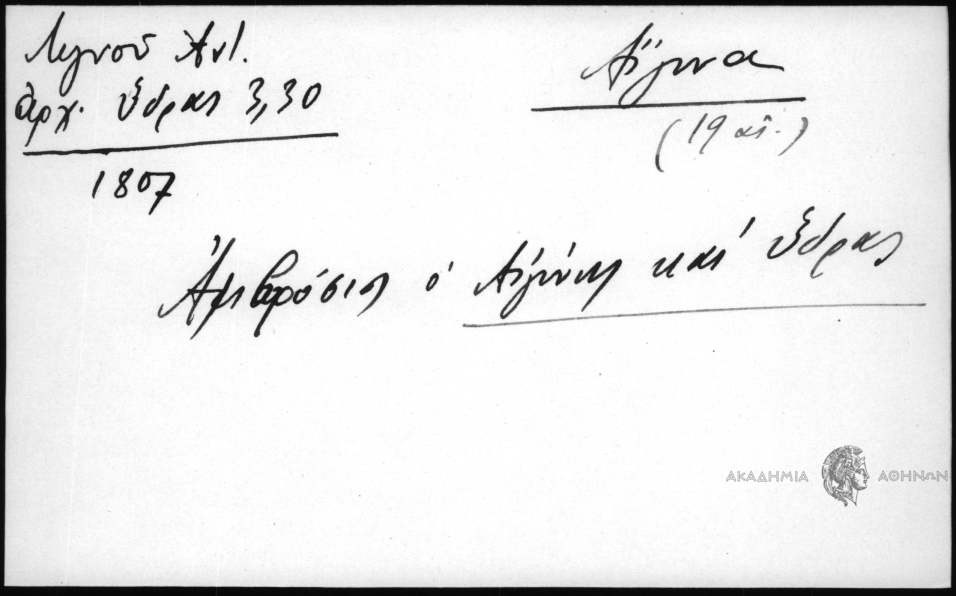 Λιγνοῦ Ἀντ.
Ἀρχ. Ὕδρας 3,30
1807
Αἴγινα
(19 αἰ.)
Ἀμβρόσιος ὁ Αἰγίνης καὶ Ὕδρας
ΑΚΑΔΗΜΙΑ ΑΘΗΝΩΝ